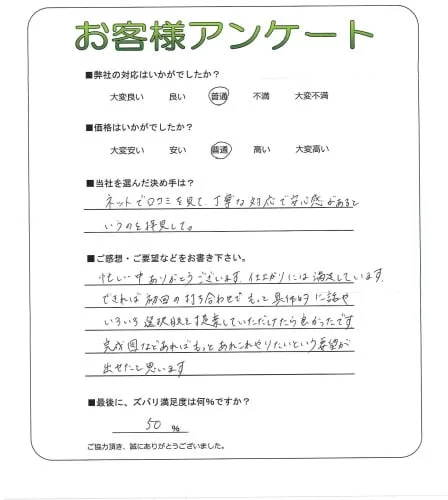 お客様アンケート
■弊社の対応はいかがでしたか？
大変良い 良い 普通 不満 大変不満
■価格はいかがでしたか？
大変安い 安い 普通 高い 大変高い
■当社を選んだ決め手は？
ネットで口コミを見て、丁寧な対応で安心感があると
いうのを拝見して。
■ご感想・ご要望などをお書き下さい。
忙しい中ありがとうございます。仕上がりには満足しています。
できれば初回の打ち合わせで もっと具体的に話や
いろいろ選択肢を提案していただけたら良かったです
完成図などあればもっとあれこれやりたいという要望が
出せたと思います
■最後に、ズバリ満足度は何%ですか？
50 %
ご協力頂き、誠にありがとうございました。